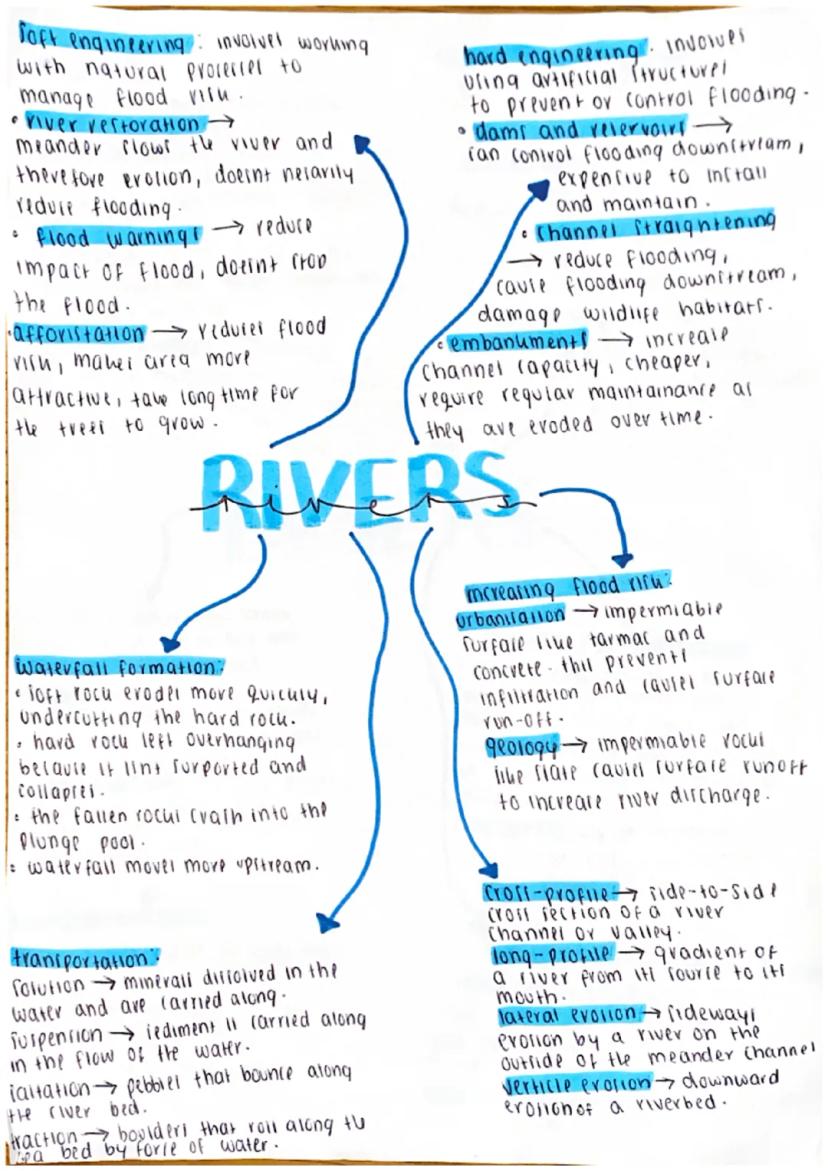 soft engineering: involves working
with natural processes to
manage flood risk.
• river restoration →
meander slows the river and
therefore erosion, doesnt nesarily
reduce flooding.
• flood warnings → reduce
impact of flood, doesnt stop
the flood.
• afforistation → reduces flood
risk, makes area more
attractive, take long time for
the trees to grow.
hard engineering. involves
using artificial structures
to prevent or control flooding.
• dams and reservoirs →
can control flooding downstream,
expensive to install
and maintain.
• channel straightening
→ reduce flooding,
cause flooding downstream,
damage wildlife habitats.
• embankments → increase
channel capacity, cheaper,
require regular maintainance as
they are eroded over time.
RIVERS
rivers
increasing flood risk:
urbanisation → impermiable
surfase like tarmac and
concrete. this prevents
infiltration and causes surface
run-off.
geology → impermiable rocks
like slate causes surface runoff
to increase river discharge.
waterfall formation:
• soft rock erodes more quickly,
undercutting the hard rock.
• hard rock left overhanging
because it isnt surported and
collapses.
• the fallen rocks crash into the
plunge pool.
• waterfall moves more upstream.
cross-profile → side-to-side
cross section of a river
channel or valley.
long-profile → gradient of
a river from its source to its
mouth.
lateral erosion → sideways
erosion by a river on the
outside of the meander channel
verticle erosion → downward
erosion of a riverbed.
transportation:
solution → minerals dissolved in the
water and are carried along.
suspension → sediment is carried along
in the flow of the water.
saltation → pebbles that bounce along
the river bed.
traction → boulders that roll along the
sea bed by force of water.